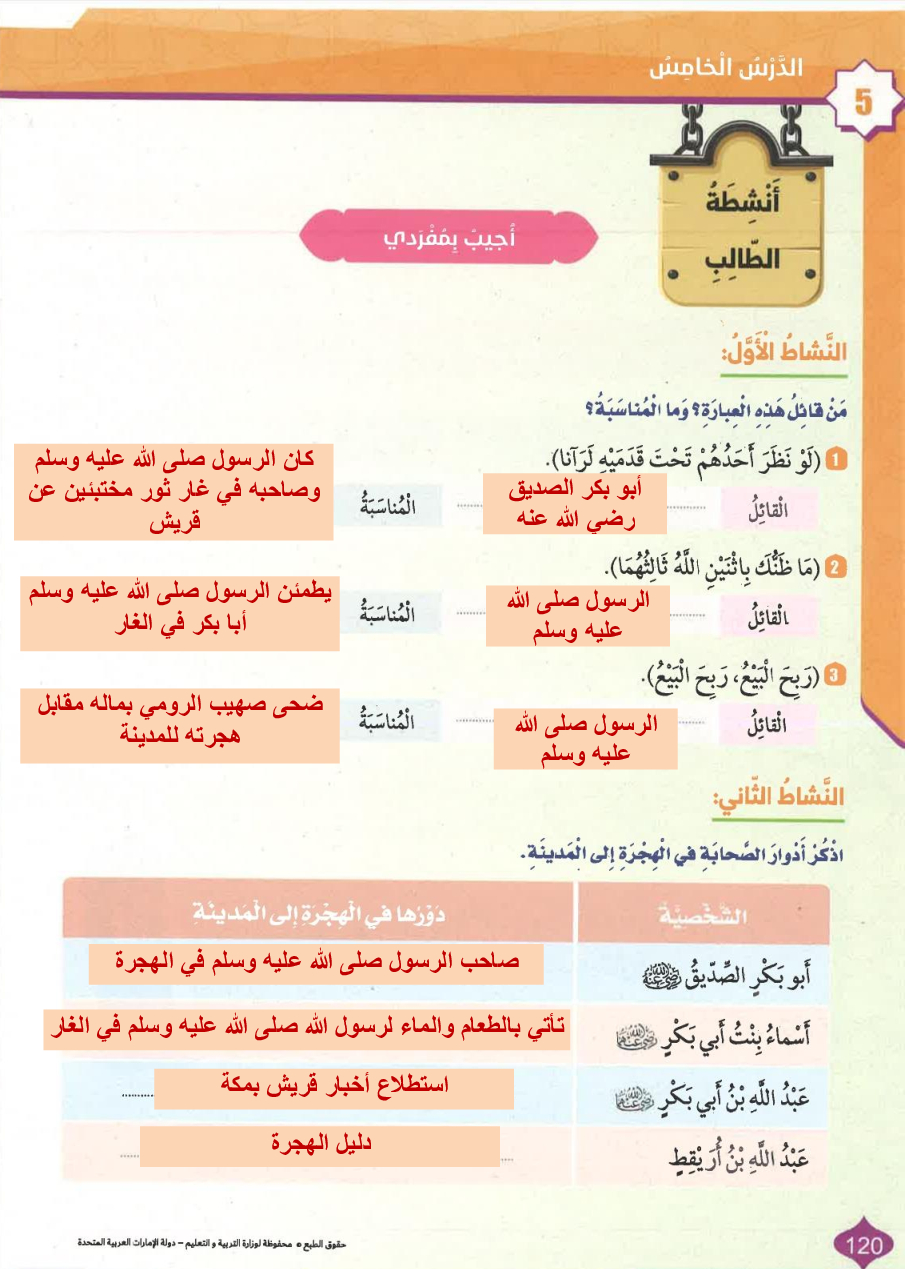 الدَّرْسُ الْخامِسُ
5
أَنْشِطَةُ
الطّالِبِ
أُجيبُ بِمُفْرَدي
النَّشاطُ الْأَوَّلُ:
مَنْ قائِلُ هَذِهِ الْعِبارَةِ؟ وَما الْمُناسَبَةُ؟
1 (لَوْ نَظَرَ أَحَدُهُمْ تَحْتَ قَدَمَيْهِ لَرَآنا).
الْقائِلُ
أبو بكر الصديق
رضي الله عنه
الْمُناسَبَةُ
كان الرسول صلى الله عليه وسلم
وصاحبه في غار ثور مختبئين عن
قريش
2 (مَا ظَنُّكَ بِاثْنَيْنِ اللَّهُ ثَالِثُهُمَا).
الْقائِلُ
الرسول صلى الله
عليه وسلم
الْمُناسَبَةُ
يطمئن الرسول صلى الله عليه وسلم
أبا بكر في الغار
3 (رَبِحَ الْبَيْعُ، رَبِحَ الْبَيْعُ).
الْقائِلُ
الرسول صلى الله
عليه وسلم
الْمُناسَبَةُ
ضحى صهيب الرومي بماله مقابل
هجرته للمدينة
النَّشاطُ الثّاني:
اذْكُرْ أَدْوارَ الصَّحابَةِ في الْهِجْرَةِ إِلى الْمَدينَةِ.
الشَّخْصِيَّةُ
دَوْرُها في الْهِجْرَةِ إِلى الْمَدينَةِ
أَبو بَكْرٍ الصِّدّيقُ رضي الله عنه
صاحب الرسول صلى الله عليه وسلم في الهجرة
أَسْماءُ بِنْتُ أَبي بَكْرٍ رضي الله عنهما
تأتي بالطعام والماء لرسول الله صلى الله عليه وسلم في الغار
عَبْدُ اللَّهِ بْنُ أَبي بَكْرٍ رضي الله عنهما
استطلاع أخبار قريش بمكة
عَبْدُ اللَّهِ بْنُ أُرَيْقِطٍ
دليل الهجرة
حقوق الطبع © محفوظة لوزارة التربية و التعليم – دولة الإمارات العربية المتحدة
120